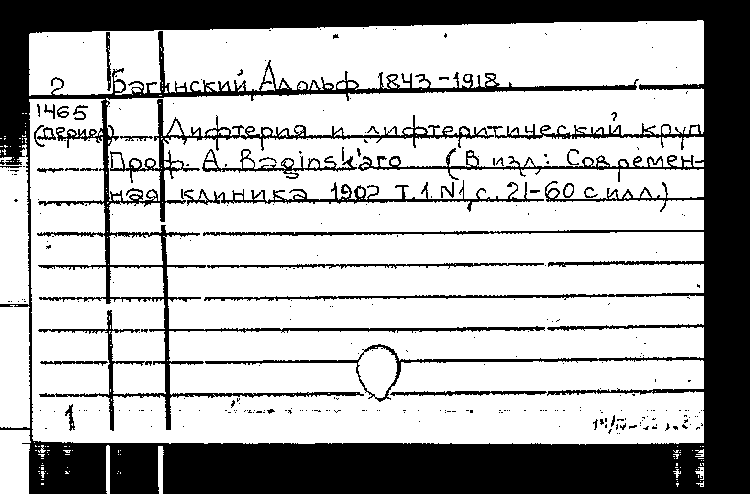 2 Багинский, Адольф 1843-1918.
1465
(период) Дифтерия и дифтеритический круп
Проф. А. Baginsk'аго (В изд.: Современ-
ная клиника 1902 Т.1 N1, с. 21-60 с илл.)
1